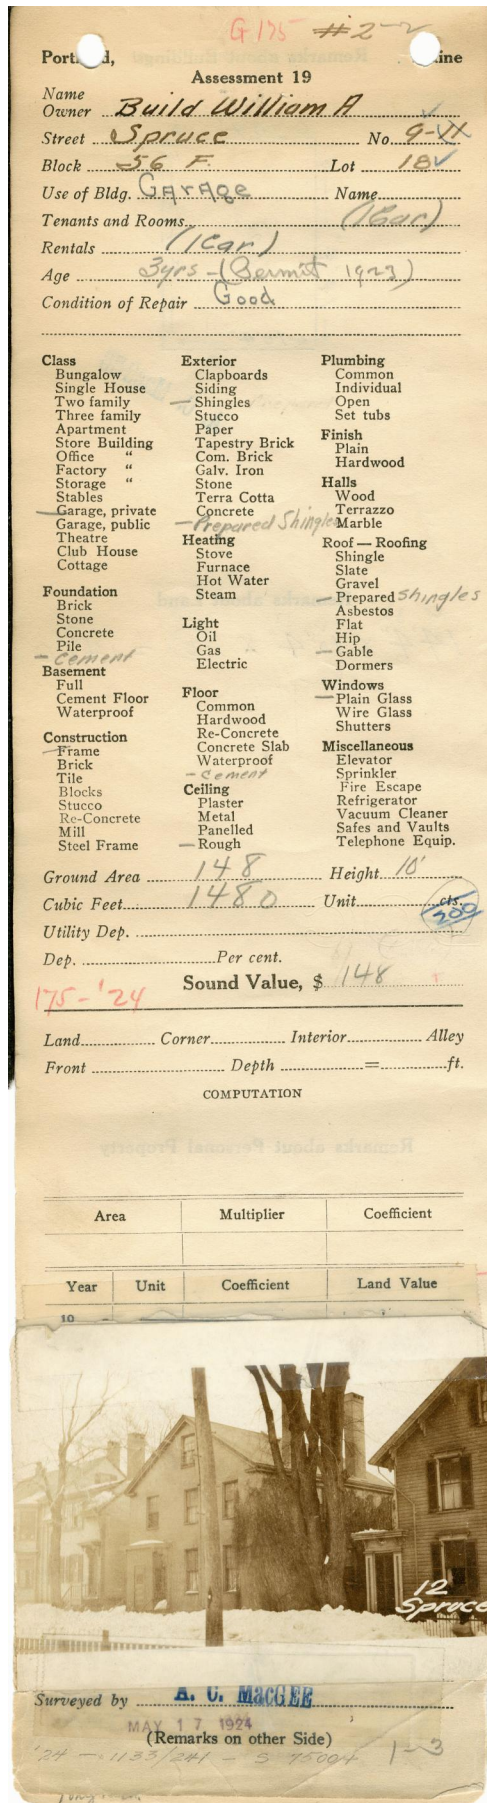 G 175 #2-2
Port d, ine
Assessment 19
Name
Owner Build William A
Street Spruce No. 9-11
Block 56 F Lot 18
Use of Bldg. Garage Name
Tenants and Rooms (1 Car)
Rentals (1 Car)
Age 3yrs - (Permit 1923)
Condition of Repair Good
Class
Bungalow
Single House
Two family
Three family
Apartment
Store Building
Office "
Factory "
Storage "
Stables
Garage, private
Garage, public
Theatre
Club House
Cottage
Foundation
Brick
Stone
Concrete
Pile
- cement
Basement
Full
Cement Floor
Waterproof
Construction
Frame
Brick
Tile
Blocks
Stucco
Re-Concrete
Mill
Steel Frame
Exterior
Clapboards
Siding
Shingles
Stucco
Paper
Tapestry Brick
Com. Brick
Galv. Iron
Stone
Terra Cotta
Concrete
- Prepared Shingles
Heating
Stove
Furnace
Hot Water
Steam
Light
Oil
Gas
Electric
Floor
Common
Hardwood
Re-Concrete
Concrete Slab
Waterproof
- cement
Ceiling
Plaster
Metal
Panelled
Rough
Plumbing
Common
Individual
Open
Set tubs
Finish
Plain
Hardwood
Halls
Wood
Terrazzo
Marble
Roof — Roofing
Shingle
Slate
Gravel
Prepared shingles
Asbestos
Flat
Hip
Gable
Dormers
Windows
Plain Glass
Wire Glass
Shutters
Miscellaneous
Elevator
Sprinkler
Fire Escape
Refrigerator
Vacuum Cleaner
Safes and Vaults
Telephone Equip.
Ground Area 148 Height 10'
Cubic Feet 1480 Unit cts.
200
Utility Dep.
Dep. Per cent.
Sound Value, $ 148
175 - '24
Land Corner Interior Alley
Front Depth = ft.
COMPUTATION
Area Multiplier Coefficient
Year Unit Coefficient Land Value
10
12
Spruce
Surveyed by A. C. MacGEE
MAY 17 1924
(Remarks on other Side)
'24 - 1133/241 - S 7500+ 1-3